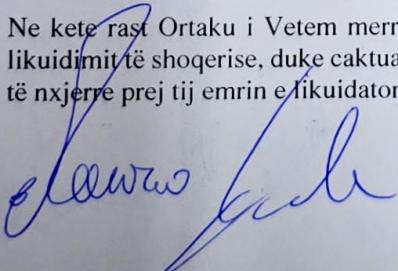 Ne kete rast Ortaku i Vetem merr
likuidimit të shoqerise, duke caktua
të nxjerre prej tij emrin e likuidator